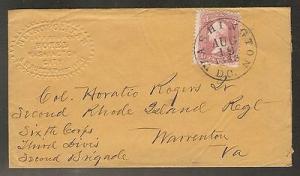 HOTEL
WASHINGTON
AUG
D.C.
Col. Horatio Rogers Jr
Second Rhode Island Regt
Sixth Corps
Third Divis
Second Brigade
Warrenton
Va